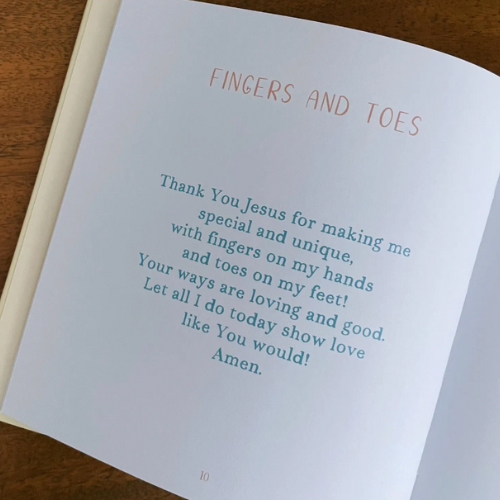 FINGERS AND TOES
Thank You Jesus for making me
special and unique,
with fingers on my hands
and toes on my feet!
Your ways are loving and good.
Let all I do today show love
like You would!
Amen.
10